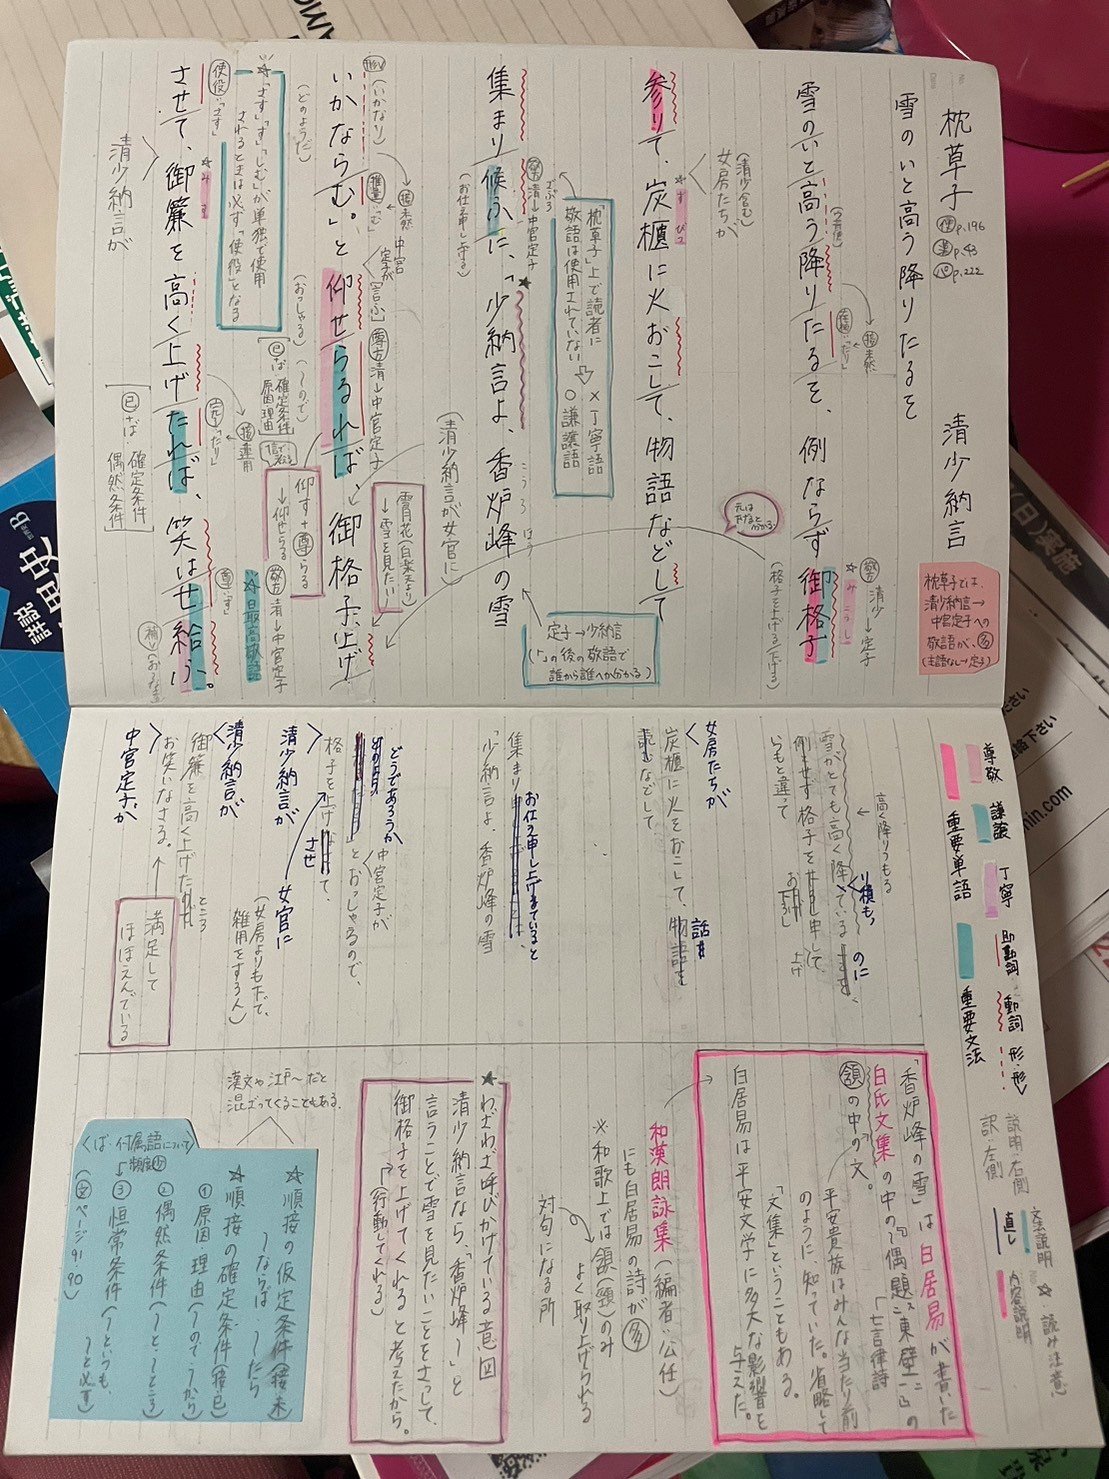 枕草子
便p.196
p.43
p.222
清少納言
雪のいと高う降りたるを
雪のいと高う降りたるを、例ならず御格子
みこうし
清少→定子
(格子を上げる/下げる)
枕草子では、
清少納言→
中宮定子への
敬語が、多
(主語なし→定子)
参りて、炭櫃に火おこして、物語などして
すびつ
(清少含む)
女房たちが
集まり候ふに、「少納言よ、香炉峰の雪
こうろほう
清→中宮定子
(お仕え申し上げる)
「枕草子」上で読者に
敬語は使用されていない
×丁寧語
○謙譲語
定子→少納言
(「」の後の敬語で
誰から誰へか分かる)
いかならむ。」と仰せらるれば、御格子上げ
(いかなり)
(どのようだ)
推量「む」
中宮
定子が
[言ふ]
(おっしゃる)
(〜ので)
尊 清→中宮定子
(清少納言が女官に)
雪月花(白楽天より)
→雪を見たい!
仰す+尊らる
→仰せらる
已+ば
確定条件
原因理由
させて、御簾を高く上げたれば、笑はせ給ふ。
みす
使役「さす」
☆「さす」「す」「しむ」が単独で使用
されるときは必ず「使役」となる
清少納言が
完「たり」
已+ば 確定条件
偶然条件
尊「す」
清→中宮定子
☆最高敬語
尊敬
謙譲
丁寧
助動詞
動詞
形・形〃
重要単語
重要文法
説明・右側
訳・左側
文法説明
直し
☆ 読み注意
内容説明
雪がとても高く降っている
高く降りつもる
り積も
のに
いつもと違って
女房たちが
炭櫃に火をおこして、物語を
話
読むなどして
集まり
お仕え申し上げていると
「少納言よ、香炉峰の雪
どうであろうか
」とおっしゃるので、
中宮定子が
格子を上げ
させ
て、
清少納言が
女官に
(女房よりも下で、
雑用をする人)
清少納言が
御簾を高く上げた
ところ
お笑いなさる。
中宮定子が
満足して
ほほえんでいる
「香炉峰の雪」は白居易が書いた
白氏文集の中の「偶題東壁」の
頷の中の文。
七言律詩
平安貴族はみんな当たり前
のように、知っていた。省略して
「文集」ということもある。
白居易は平安文学に多大な影響を
与えた。
和漢朗詠集(編者:公任)
にも白居易の詩が多
※和歌上では頷(頸)のみ
よく取り上げられる
対句になる所
★わざわざ呼びかけている意図
清少納言なら、「香炉峰〜」と
言うことで雪を見たいことをさとって、
御格子を上げてくれると考えたから。
(行動してくれる)
漢文や江戸〜だと
混ざってくることもある。
くば・付属語について
☆順接の仮定条件(接未)
〜ならば 〜したら
☆順接の確定条件(接已)
① 原因理由(〜ので・〜から)
② 偶然条件(〜と・〜ところ)
③ 恒常条件(〜といつも、
〜と必ず)
(文ページ91.90)